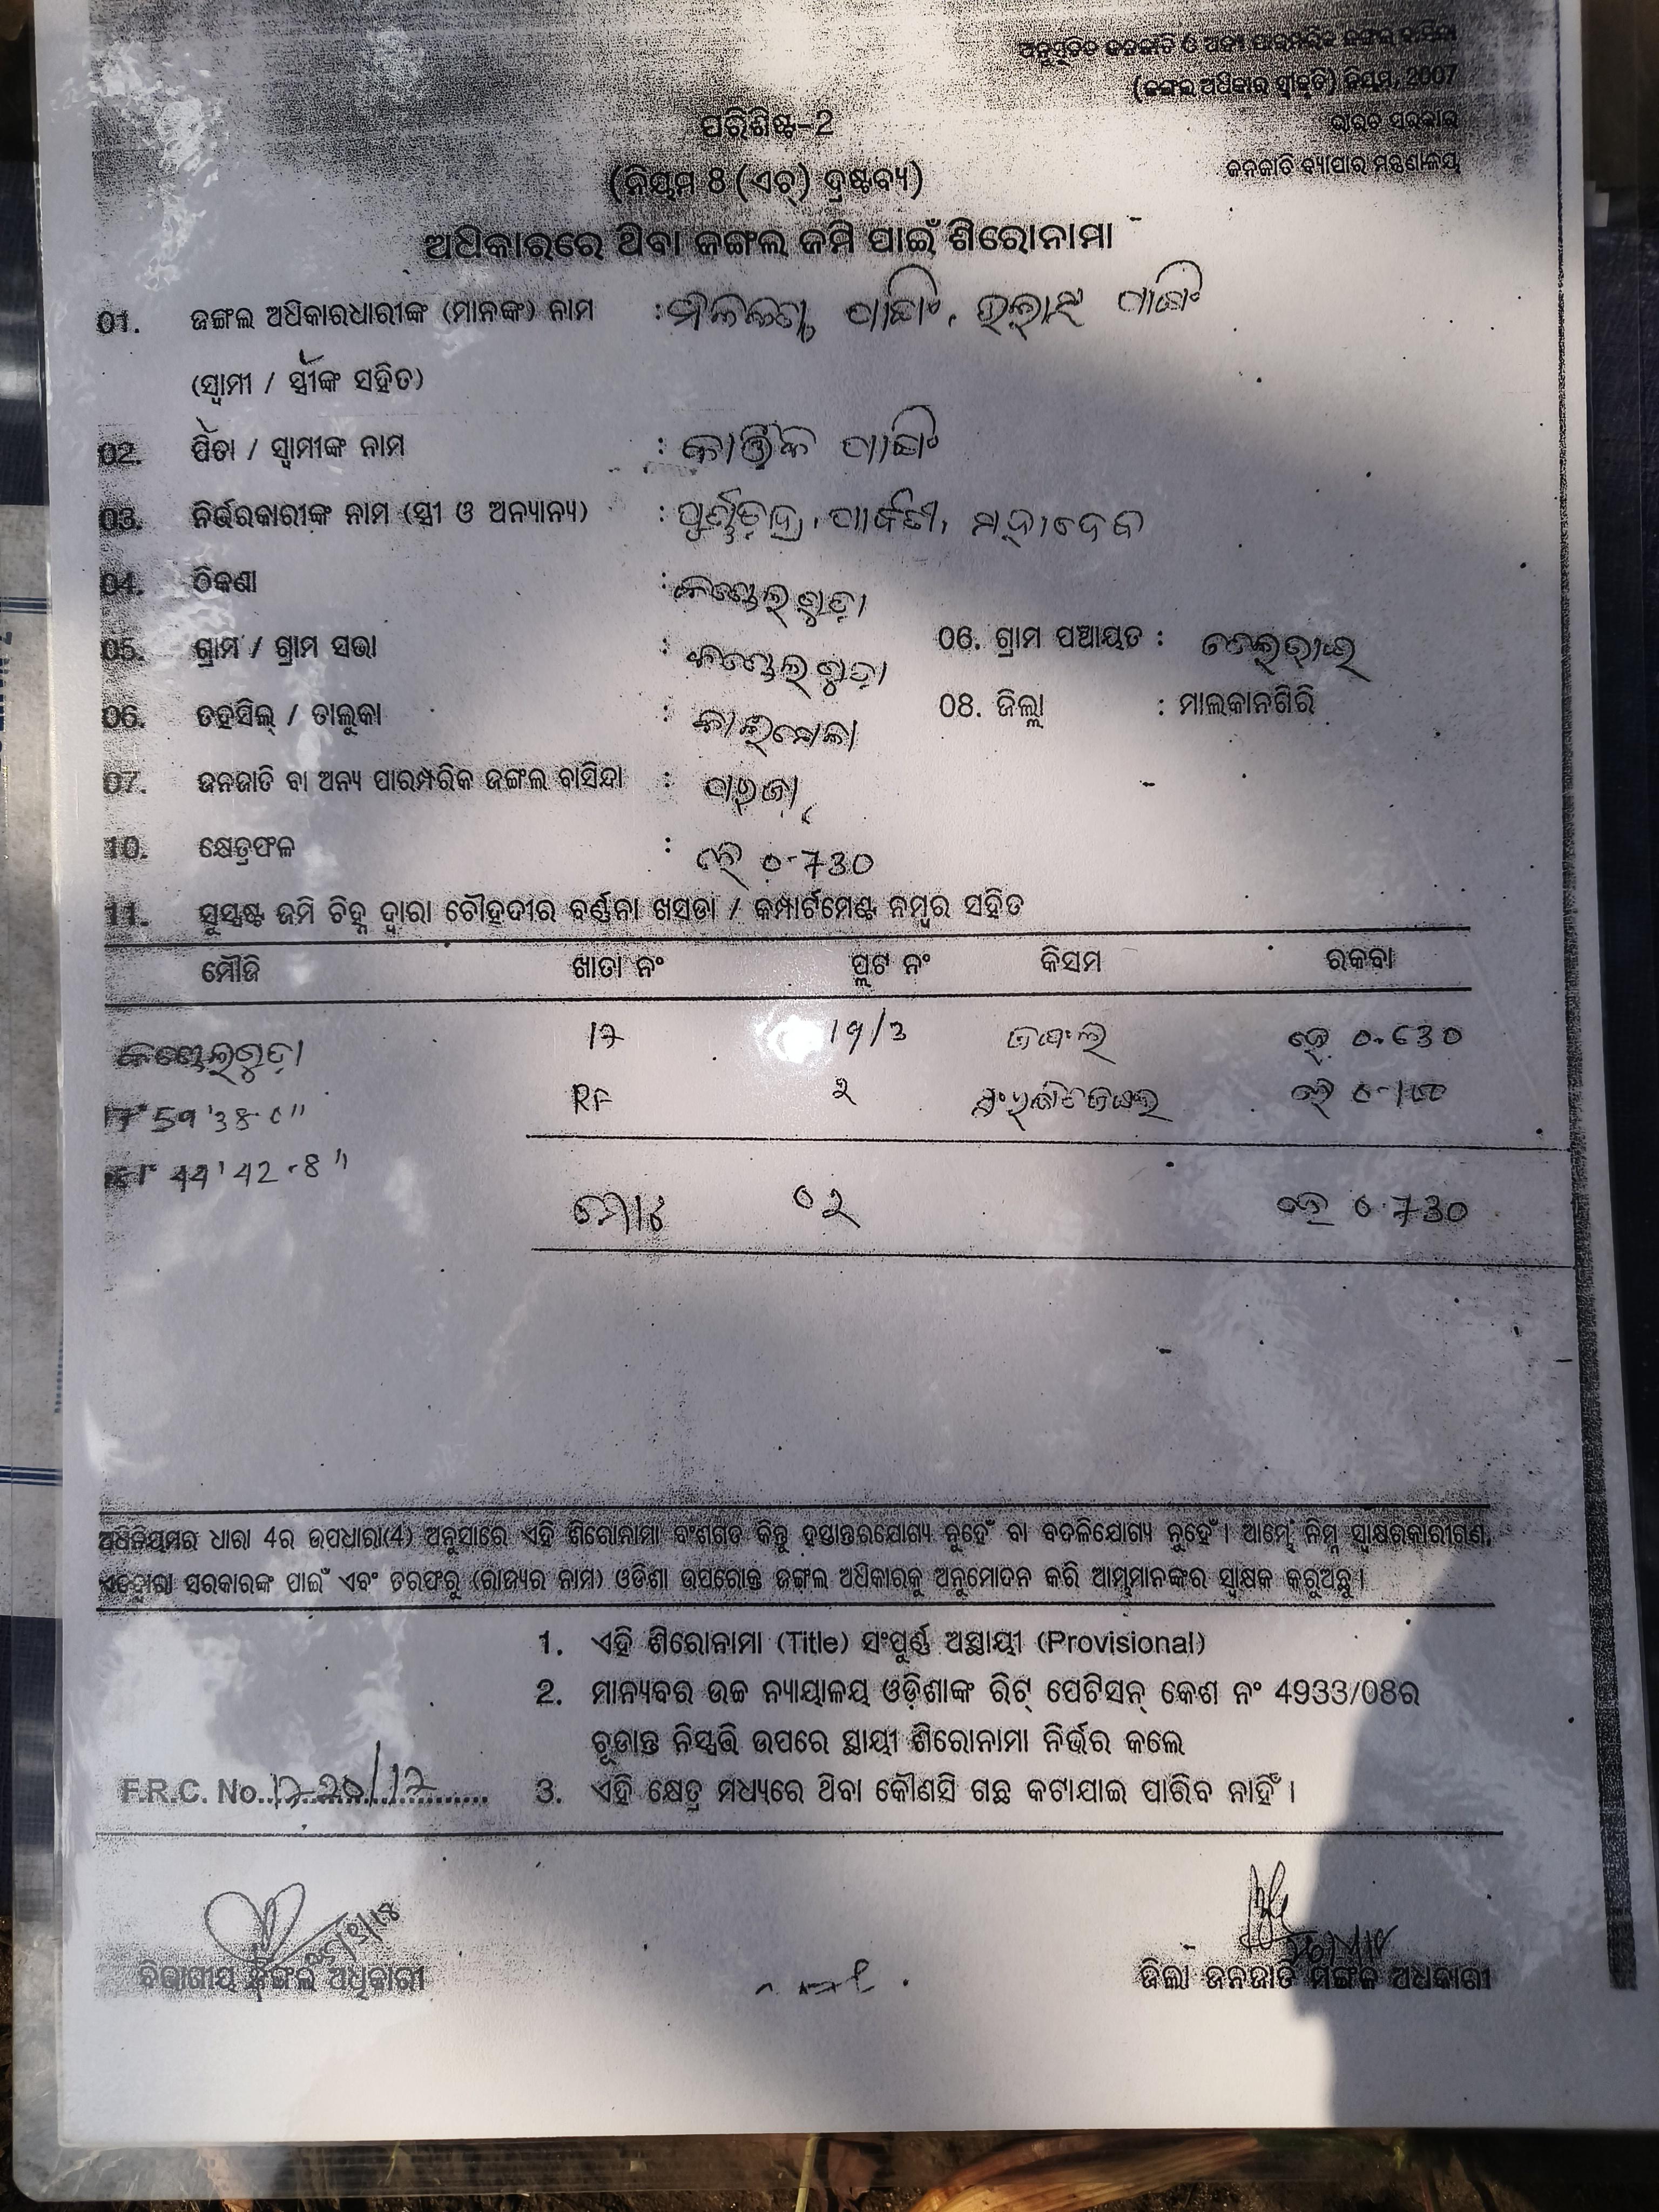 ଅନୁସୂଚିତ ଜନଜାତି ଓ ଅନ୍ୟ ପାରମ୍ପରିକ ଜଙ୍ଗଲ ବାସିନ୍ଦା
(ଜଙ୍ଗଲ ଅଧିକାର ସ୍ୱୀକୃତି) ନିୟମ, 2007
ଭାରତ ସରକାର
ଜନଜାତି ବ୍ୟାପାର ମନ୍ତ୍ରଣାଳୟ
ପରିଶିଷ୍ଟ-2
(ନିୟମ 8 (ଏଚ୍) ଦ୍ରଷ୍ଟବ୍ୟ)
ଅଧିକାରରେ ଥିବା ଜଙ୍ଗଲ ଜମି ପାଇଁ ଶିରୋନାମା
01. ଜଙ୍ଗଲ ଅଧିକାରଧାରୀଙ୍କ (ମାନଙ୍କ) ନାମ :
(ସ୍ୱାମୀ / ସ୍ତ୍ରୀଙ୍କ ସହିତ)
02. ପିତା / ସ୍ୱାମୀଙ୍କ ନାମ : କାର୍ତ୍ତିକ
03. ନିର୍ଭରକାରୀଙ୍କ ନାମ (ସ୍ତ୍ରୀ ଓ ଅନ୍ୟାନ୍ୟ) : ପାର୍ବତୀ, ମହାଦେବ
04. ଠିକଣା :
05. ଗ୍ରାମ / ଗ୍ରାମ ସଭା : 06. ଗ୍ରାମ ପଞ୍ଚାୟତ :
06. ତହସିଲ୍ / ତାଲୁକା : 08. ଜିଲ୍ଲା : ମାଲକାନଗିରି
07. ଜନଜାତି ବା ଅନ୍ୟ ପାରମ୍ପରିକ ଜଙ୍ଗଲ ବାସିନ୍ଦା : ପରଜା
10. କ୍ଷେତ୍ରଫଳ : ହେ 0.730
11. ସୁସ୍ପଷ୍ଟ ଜମି ଚିହ୍ନ ଦ୍ୱାରା ଚୌହଦୀର ବର୍ଣ୍ଣନା ଖସଡା / କମ୍ପାର୍ଟମେଣ୍ଟ ନମ୍ବର ସହିତ
ମୌଜି ଖାତା ନଂ ପ୍ଲଟ ନଂ କିସମ ରକବା
17 19/3 ଜଙ୍ଗଲ ହେ 0.630
59'38
RF ୨ ହେ
44'42.8"
ମୋଟ ୦୨ ହେ 0.730
ଅଧିନିୟମର ଧାରା 4ର ଉପଧାରା(4) ଅନୁସାରେ ଏହି ଶିରୋନାମା ବଂଶଗତ କିନ୍ତୁ ହସ୍ତାନ୍ତରଯୋଗ୍ୟ ନୁହେଁ ବା ବଦଳିଯୋଗ୍ୟ ନୁହେଁ । ଆମ୍ଭେ ନିମ୍ନ ସ୍ୱାକ୍ଷରକାରୀଗଣ,
ଏତଦ୍ୱାରା ସରକାରଙ୍କ ପାଇଁ ଏବଂ ତରଫରୁ (ରାଜ୍ୟର ନାମ) ଓଡିଶା ଉପରୋକ୍ତ ଜଙ୍ଗଲ ଅଧିକାରକୁ ଅନୁମୋଦନ କରି ଆମ୍ଭମାନଙ୍କର ସ୍ୱାକ୍ଷର କରୁଅଛୁ ।
1. ଏହି ଶିରୋନାମା (Title) ସଂପୂର୍ଣ୍ଣ ଅସ୍ଥାୟୀ (Provisional)
2. ମାନ୍ୟବର ଉଚ୍ଚ ନ୍ୟାୟାଳୟ ଓଡ଼ିଶାଙ୍କ ରିଟ୍ ପେଟିସନ୍ କେଶ ନଂ 4933/08ର
ଚୂଡାନ୍ତ ନିସ୍ପତ୍ତି ଉପରେ ସ୍ଥାୟୀ ଶିରୋନାମା ନିର୍ଭର କଲେ
F.R.C. No. 3. ଏହି କ୍ଷେତ୍ର ମଧ୍ୟରେ ଥିବା କୌଣସି ଗଛ କଟାଯାଇ ପାରିବ ନାହିଁ ।
ବିଭାଗୀୟ ଜଙ୍ଗଲ ଅଧିକାରୀ ଜିଲା ଜନଜାତି ମଙ୍ଗଳ ଅଧିକାରୀ